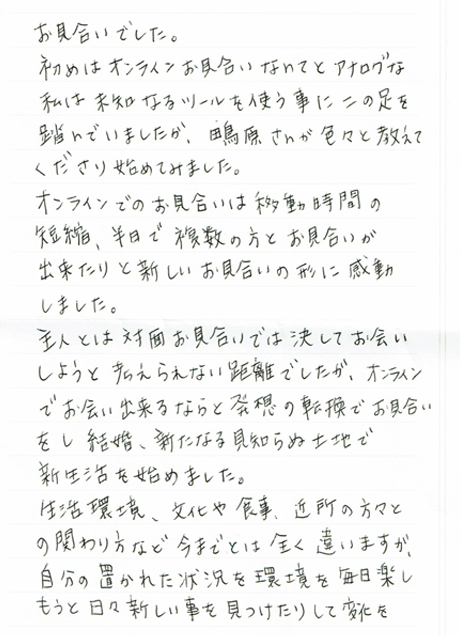 お見合いでした。
初めはオンラインお見合いなんてとアナログな
私は未知なるツールを使う事に二の足を
踏んでいましたが、鴫原さんが色々と教えて
くださり始めてみました。
オンラインでのお見合いは移動時間の
短縮、半日で複数の方とお見合いが
出来たりと新しいお見合いの形に感動
しました。
主人とは対面お見合いでは決してお会い
しようと考えられない距離でしたが、オンライン
でお会い出来るならと発想の転換でお見合い
をし結婚、新たなる見知らぬ土地で
新生活を始めました。
生活環境、文化や食事、近所の方々と
の関わり方など今までとは全く違いますが、
自分の置かれた状況を環境を毎日楽し
もうと日々新しい事を見つけたりして変化を